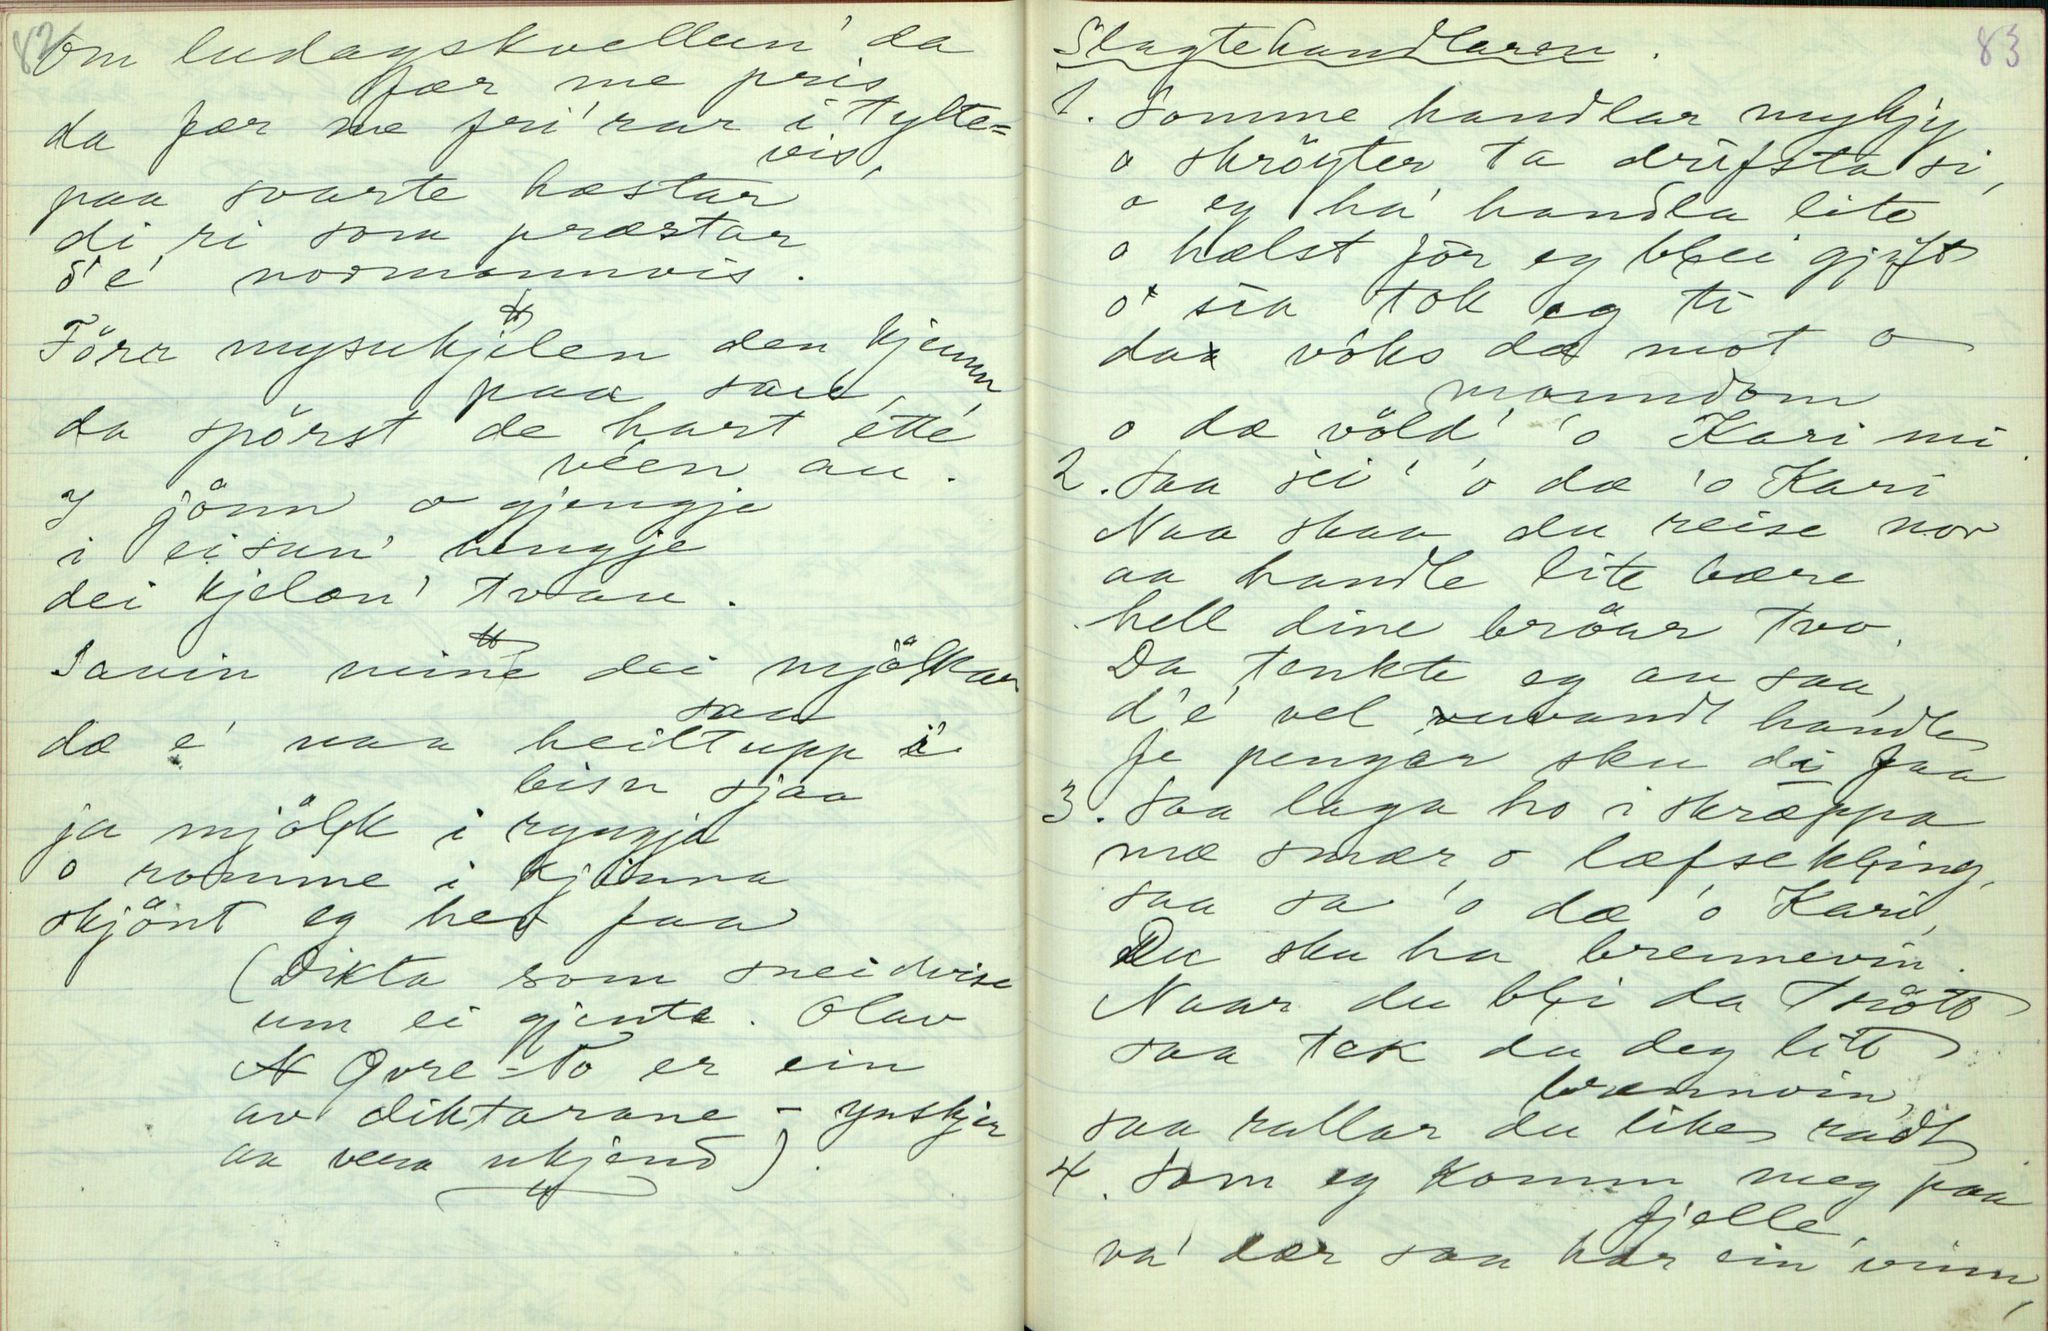 82
Om ludagskvellen' da
fær me pris
da fær me fri'rar i tylte=
vis,
paa svarte hæstar
di ri som præstar
d'e' normannvis.
Förr mysukjelen den kjemm
paa sau,
da spörst de hart ette'
veen au.
I jönn o gjengje
i eisun' hengje
dei kjelan' tvau.
Sauin mine dei mjölkar
saa
dæ e' naa heilt upp i
bisn sjaa
ja mjölk i ryngja
o romme i kjinna
skjönt eg her faa
(Dikta som sneidvise
um ei gjenta. Olav
N Qvre-To er ein
av diktarane - ynskjer
aa vera ukjend).
83
Slagtehandlaren.
1. Somme handlar mykjy
o skröyter ta drifsta si,
o eg ha' handla lite
o hælst för eg blei gjift
o sia tok eg ti
daa voks da mot o
manndom
o dæ völd' 'o Kari mi.
2. Saa sei' 'o dæ 'o Kari
Naa skaa du reise nor
aa handle lite bære
hell dine bröar tvo.
Da tenkte eg au saa,
d'e' vel uvandt handle
fe pengar sku di faa
3. Saa laga ho i skræppa
mæ smær o læfsekling,
saa sa 'o dæ 'o Kari,
Du sku ha brennevin.
Naar du bli da trött
saa tek du deg litt
brennvin,
saa rallar du like radt
4. Som eg komm meg paa
fjelle,
va' dær saa har ein vinn,